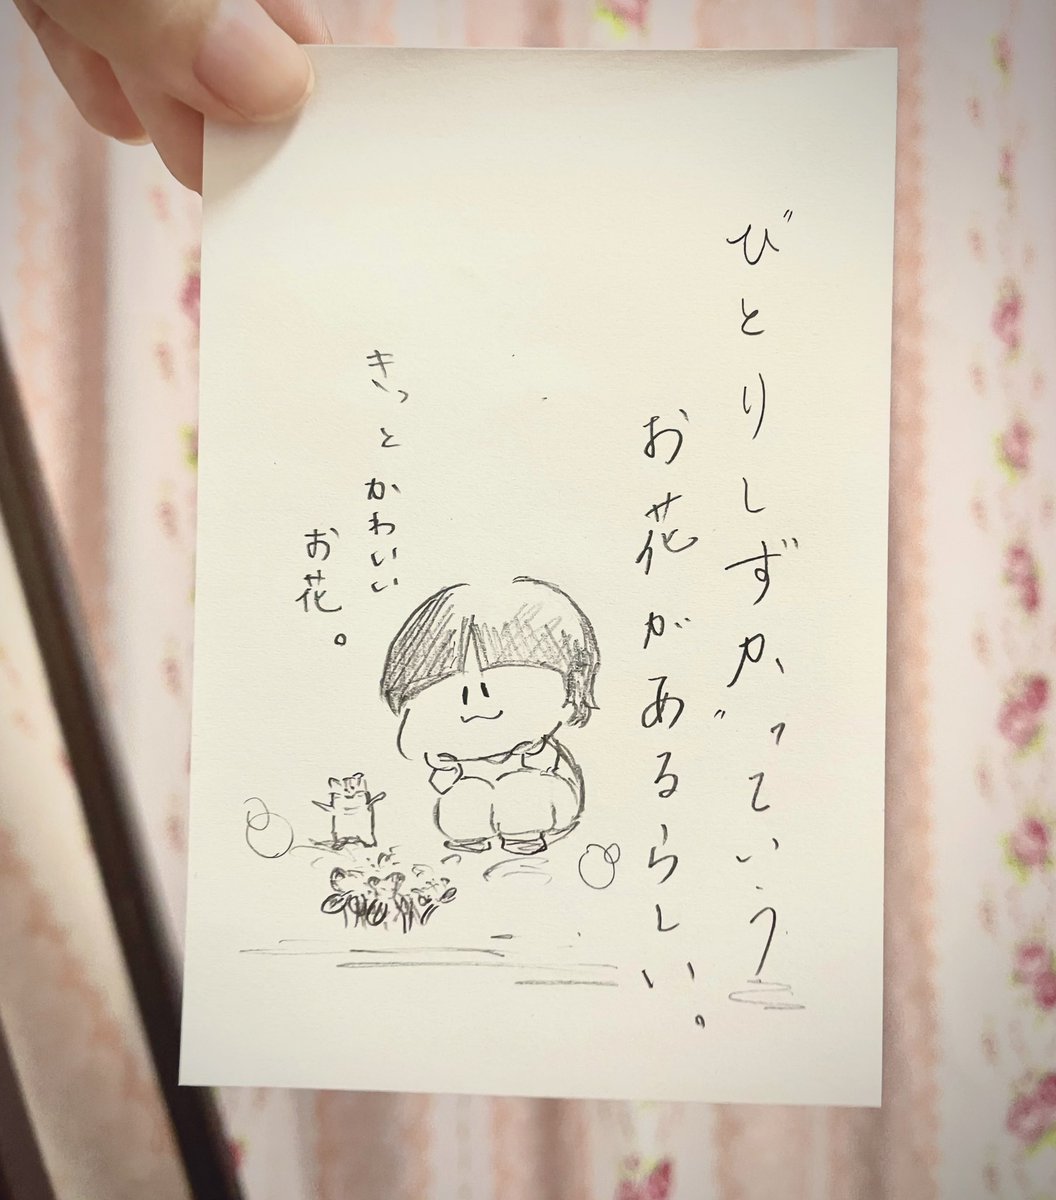 〝ひとりしずか〟っていう
お花があるらしい。
きっとかわいい
お花。